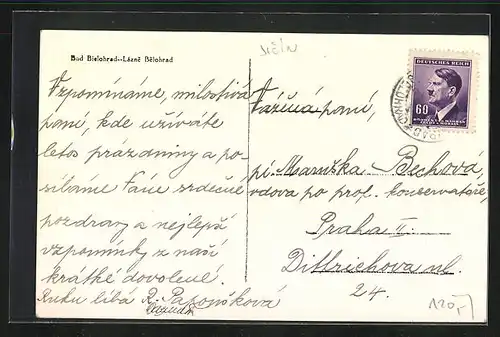 JIČÍN
Bad Bielohrad--Lázně Bělohrad
Vzpomínáme, milostivá
paní, kde užíváte
letos prázdniny a po-
síláme Vám srdečné
pozdravy a nejlepší
vzpomínky z naší
krátké dovolené.
Ruku líbá R.
DEUTSCHES REICH
60
BÖHMEN UND MÄHREN
ČECHY A MORAVA
Vážená paní,
pí Maruška Bechová,
vdova po prof. konservatoře,
Praha II.
Dittrichova ul.
24.
120,-